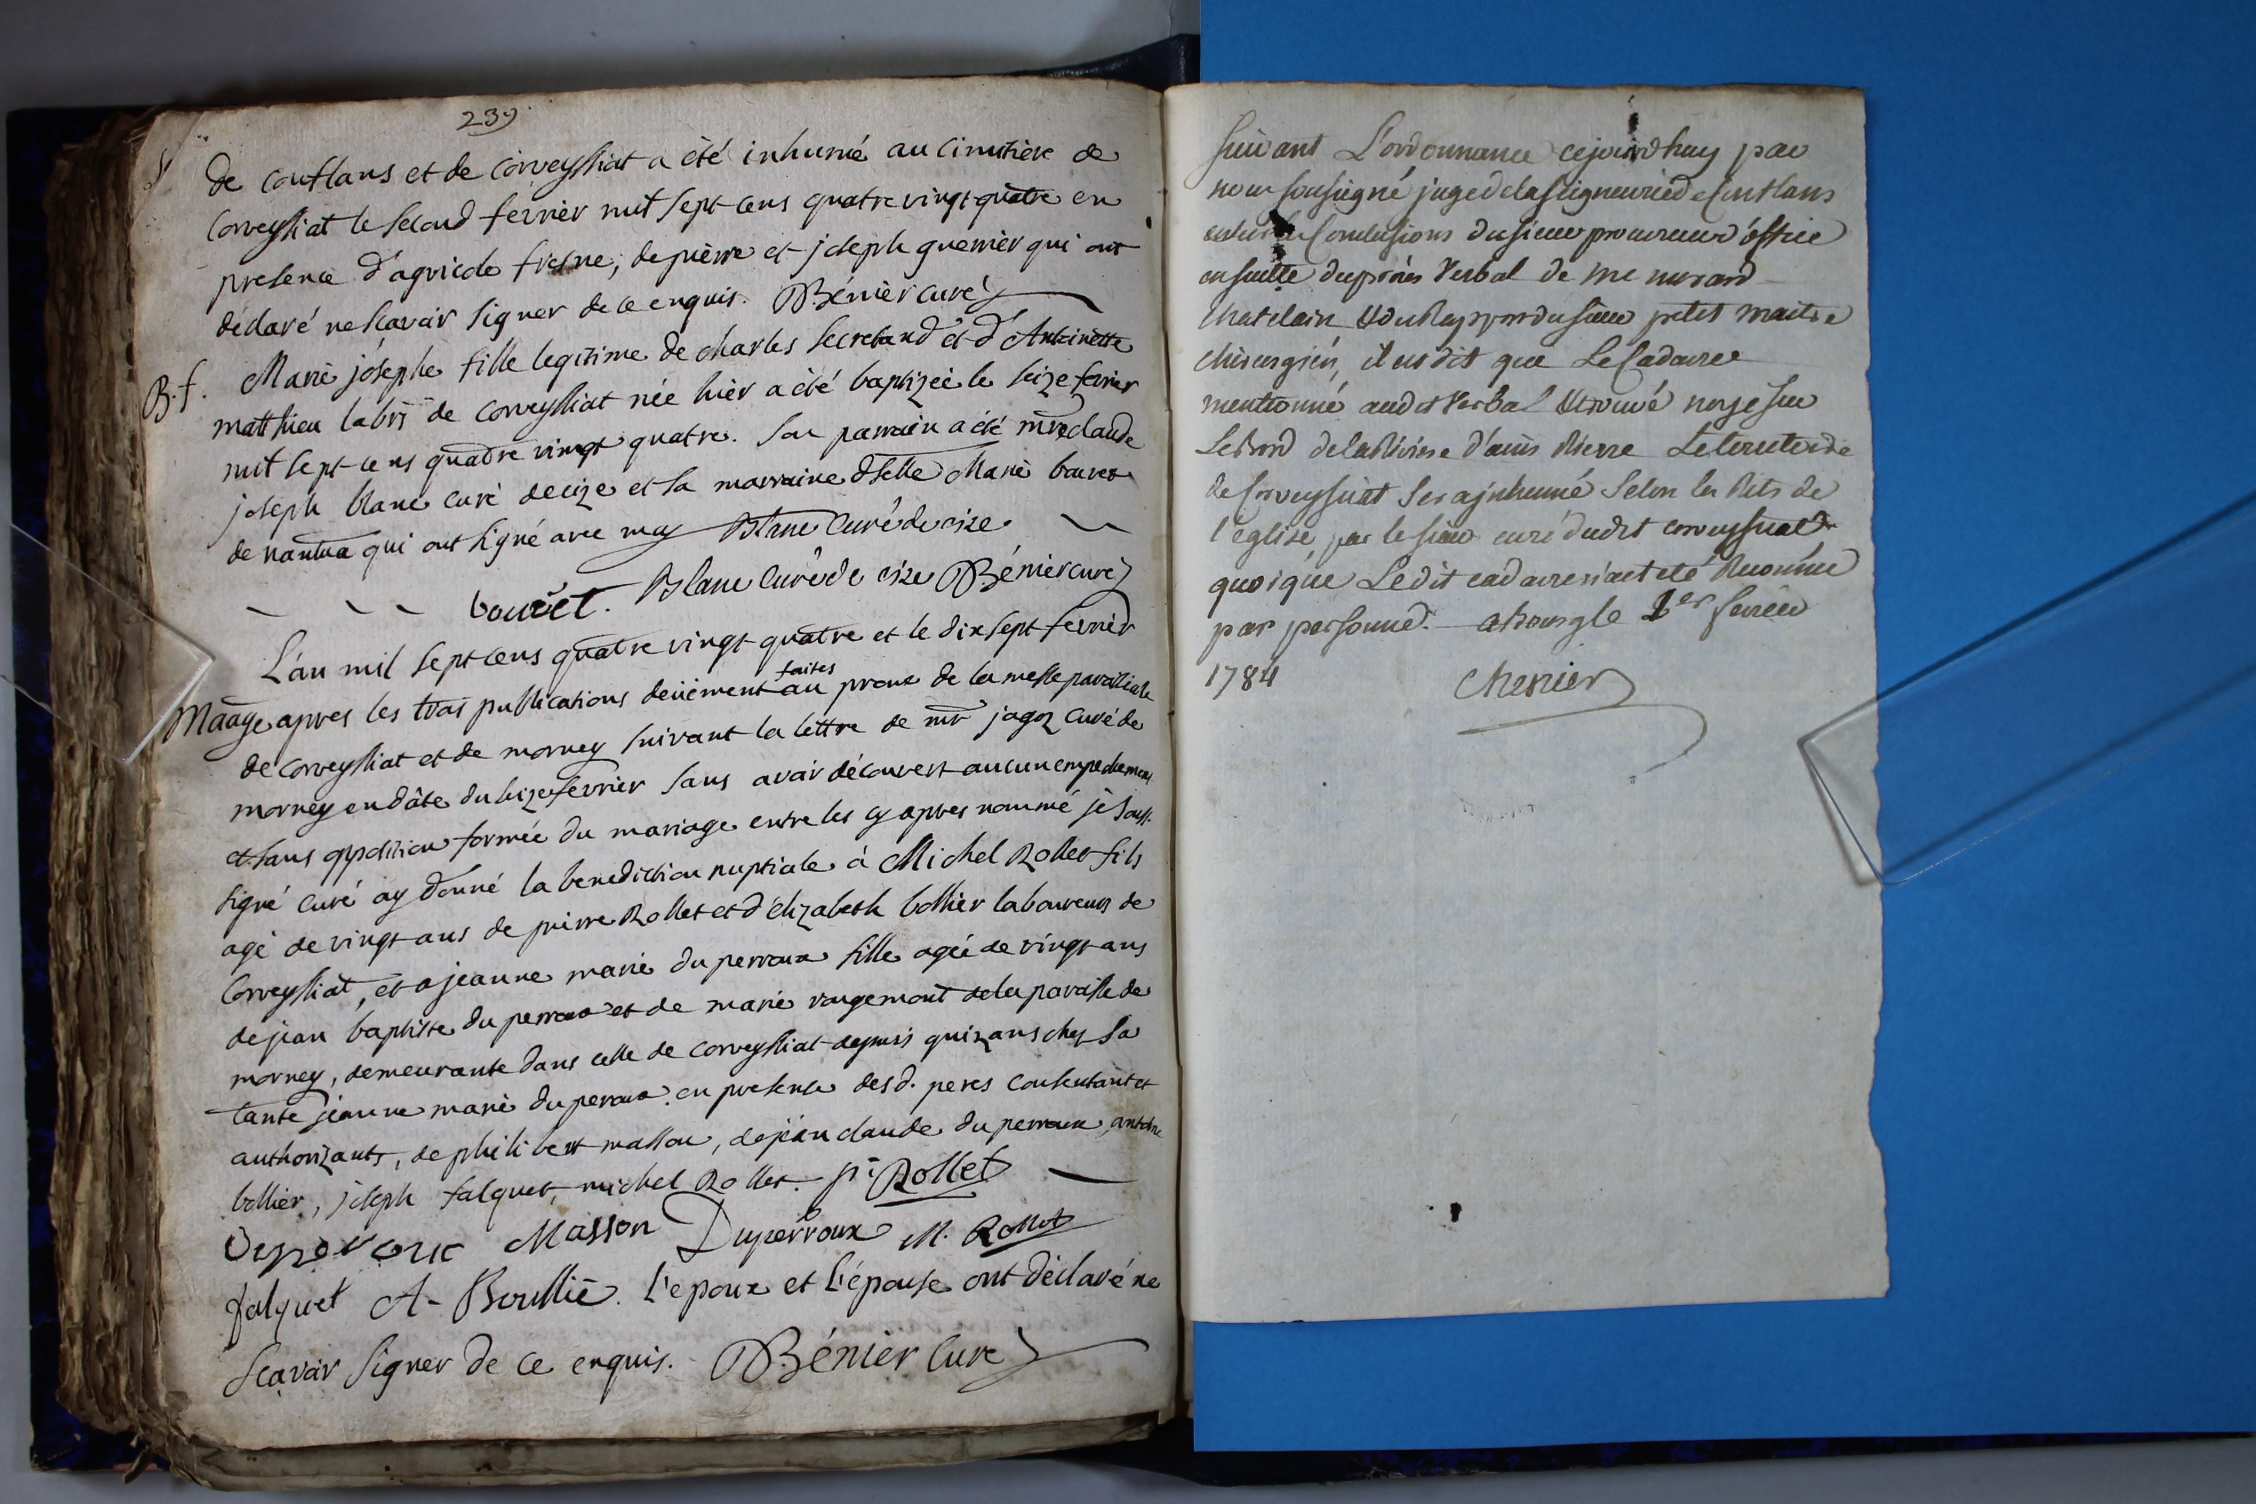 239
S
de conflans et de corveyssiat a été inhumé au cimetière de
Corveyssiat le second fevrier mil sept cens quatre vingt quatre en
presence d'agricole fresne, de pierre et joseph guerrier qui ont
déclaré ne scavoir signer de ce enquis. Bénier curé
B. f. Marie josephe fille legitime de charles secretand et d'Antoinette
matthieu labrs de corveyssiat née hier a été baptizée le seize fevrier
mil sept cens quatre vingt quatre. Son parrain a été mre claude
joseph blanc curé de cize et la marraine dselle Marie bouvet
de nantua qui ont signé avec moy Blanc Curé de cize
bouvet. Blanc Curé de cize Bénier curé
L'an mil sept cens quatre vingt quatre et le dix sept fevrier
faites
Maage apres les trois publications deüement au prone de la messe paroissiale
de corveyssiat et de mornay suivant la lettre de mr jagoz curé de
mornay en dâte du seize fevrier sans avoir découvert aucun empechement
et sans opposition formée du mariage entre les cy apres nommé je sous
signé curé ay donné la benediction nuptiale à Michel Rollet fils
agé de vingt ans de pierre Rollet et d'élizabeth bollier laboureurs de
Corveyssiat, et a jeanne marie du perroux fille agée de vingt ans
de jean baptiste du perroux et de marie rougemont de la paroisse de
mornay, demeurante dans celle de corveyssiat depuis quinz ans chez sa
tante jeanne marie du perroux en presence desd. peres consentant et
authorizants, de philibert masson, de jean claude du perroux, antoine
bollier, joseph falquet, michel Rollet. pr Rollet
Masson Duperroux M. Rollet
falquet A. Boullié. L'epoux et l'épouse ont déclaré ne
scavoir signer de ce enquis. Bénier curé
Suivant L'ordonnance cejourdhuy par
nous soussigné juge de la seigneurie de Conflans
et sur les Conclusions du sieur procureur d'office
ensuitte du procés Verbal de me morand
chatelain et du Rapport du sieur petit maitre
chirurgien, il est dit que Le Cadavre
mentionné audit Verbal et trouvé noyé sur
Le bord de la Riviere d'ains Riere Le territoire
de Corveyssiat sera jnhumé selon les Rits de
l'eglise, par le sieur curé dudit corveyssiat
quoique Ledit cadavre n'aet eté Reconnu
par personne. a bourg le 1er fevrier
1784 Chenier